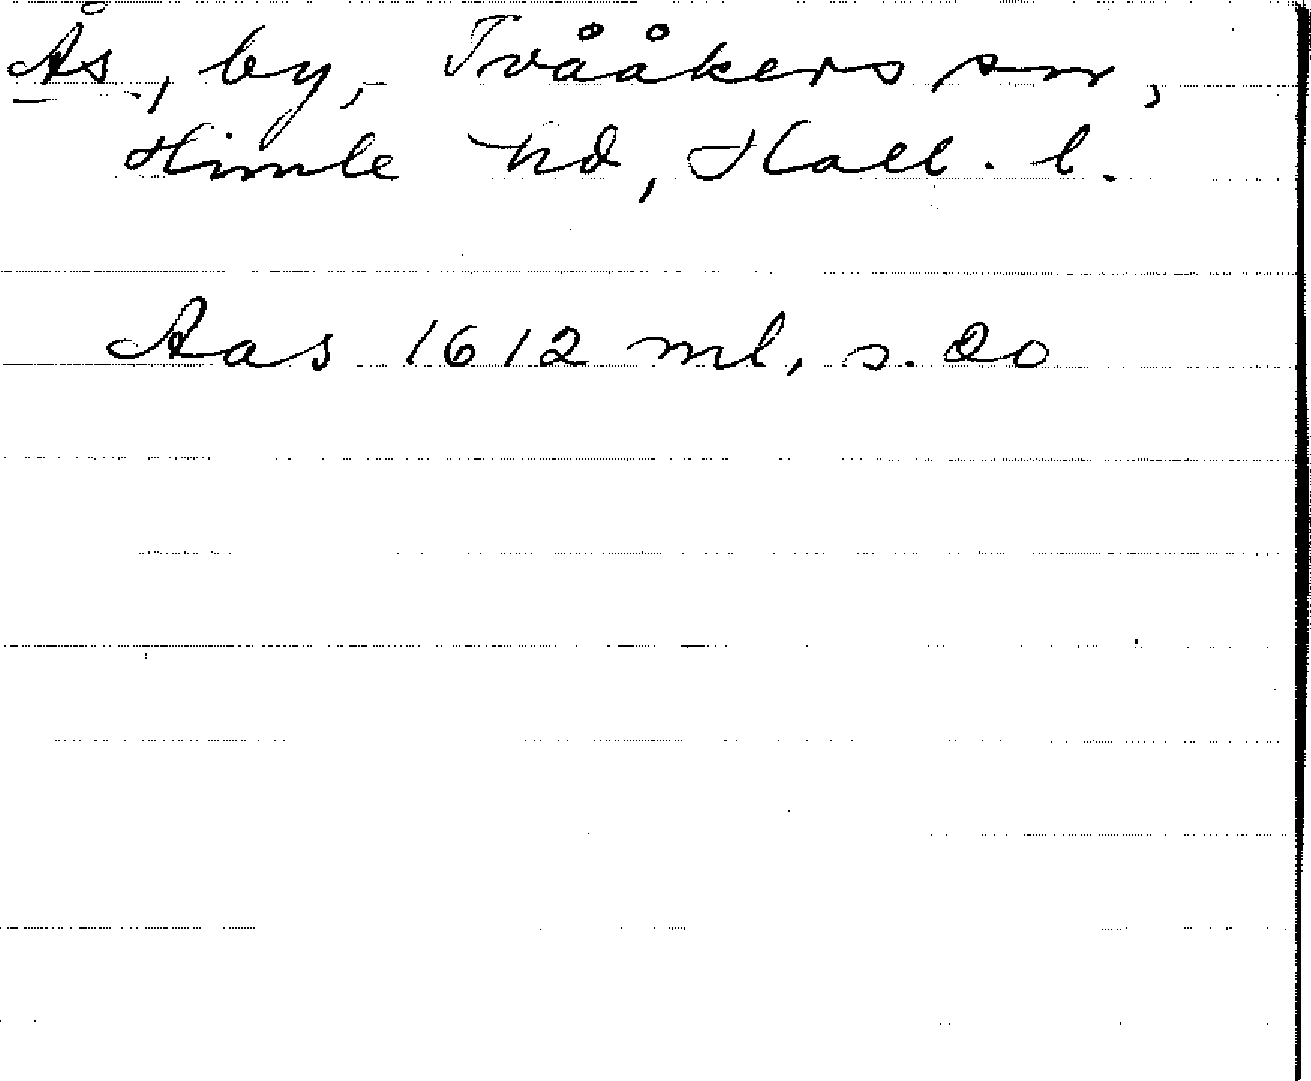 Ås, by, Tvååkers sn,
Himle hd, Hall. l.
Aas 1612 ml, s. 20